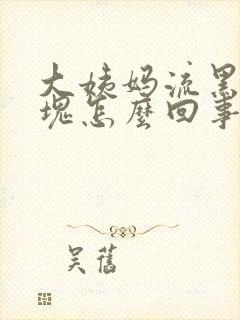 大姨妈流黑
块怎麼回事
吴舊